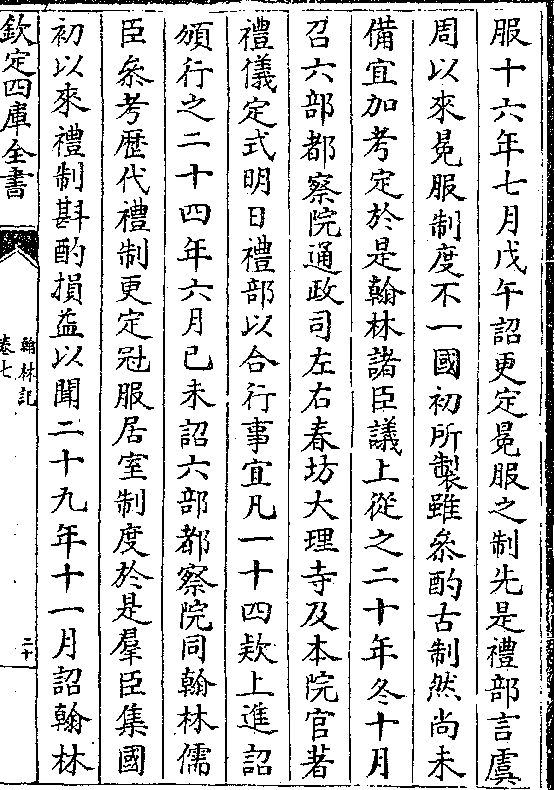 服十六年七月戊午詔更定冕服之制先是禮部言虞
周以來冕服制度不一國初所製雖叅酌古制然尚未
備宜加考定於是翰林諸臣議上從之二十年冬十月
召六部都察院通政司左右春坊大理寺及本院官著
禮儀定式明日禮部以合行事宜凡一十四欵上進詔
頒行之二十四年六月己未詔六部都察院同翰林儒
臣叅考歴代禮制更定冠服居室制度於是羣臣集國
初以來禮制斟酌損益以聞二十九年十一月詔翰林
欽定四庫全書
翰林記
卷七
二十